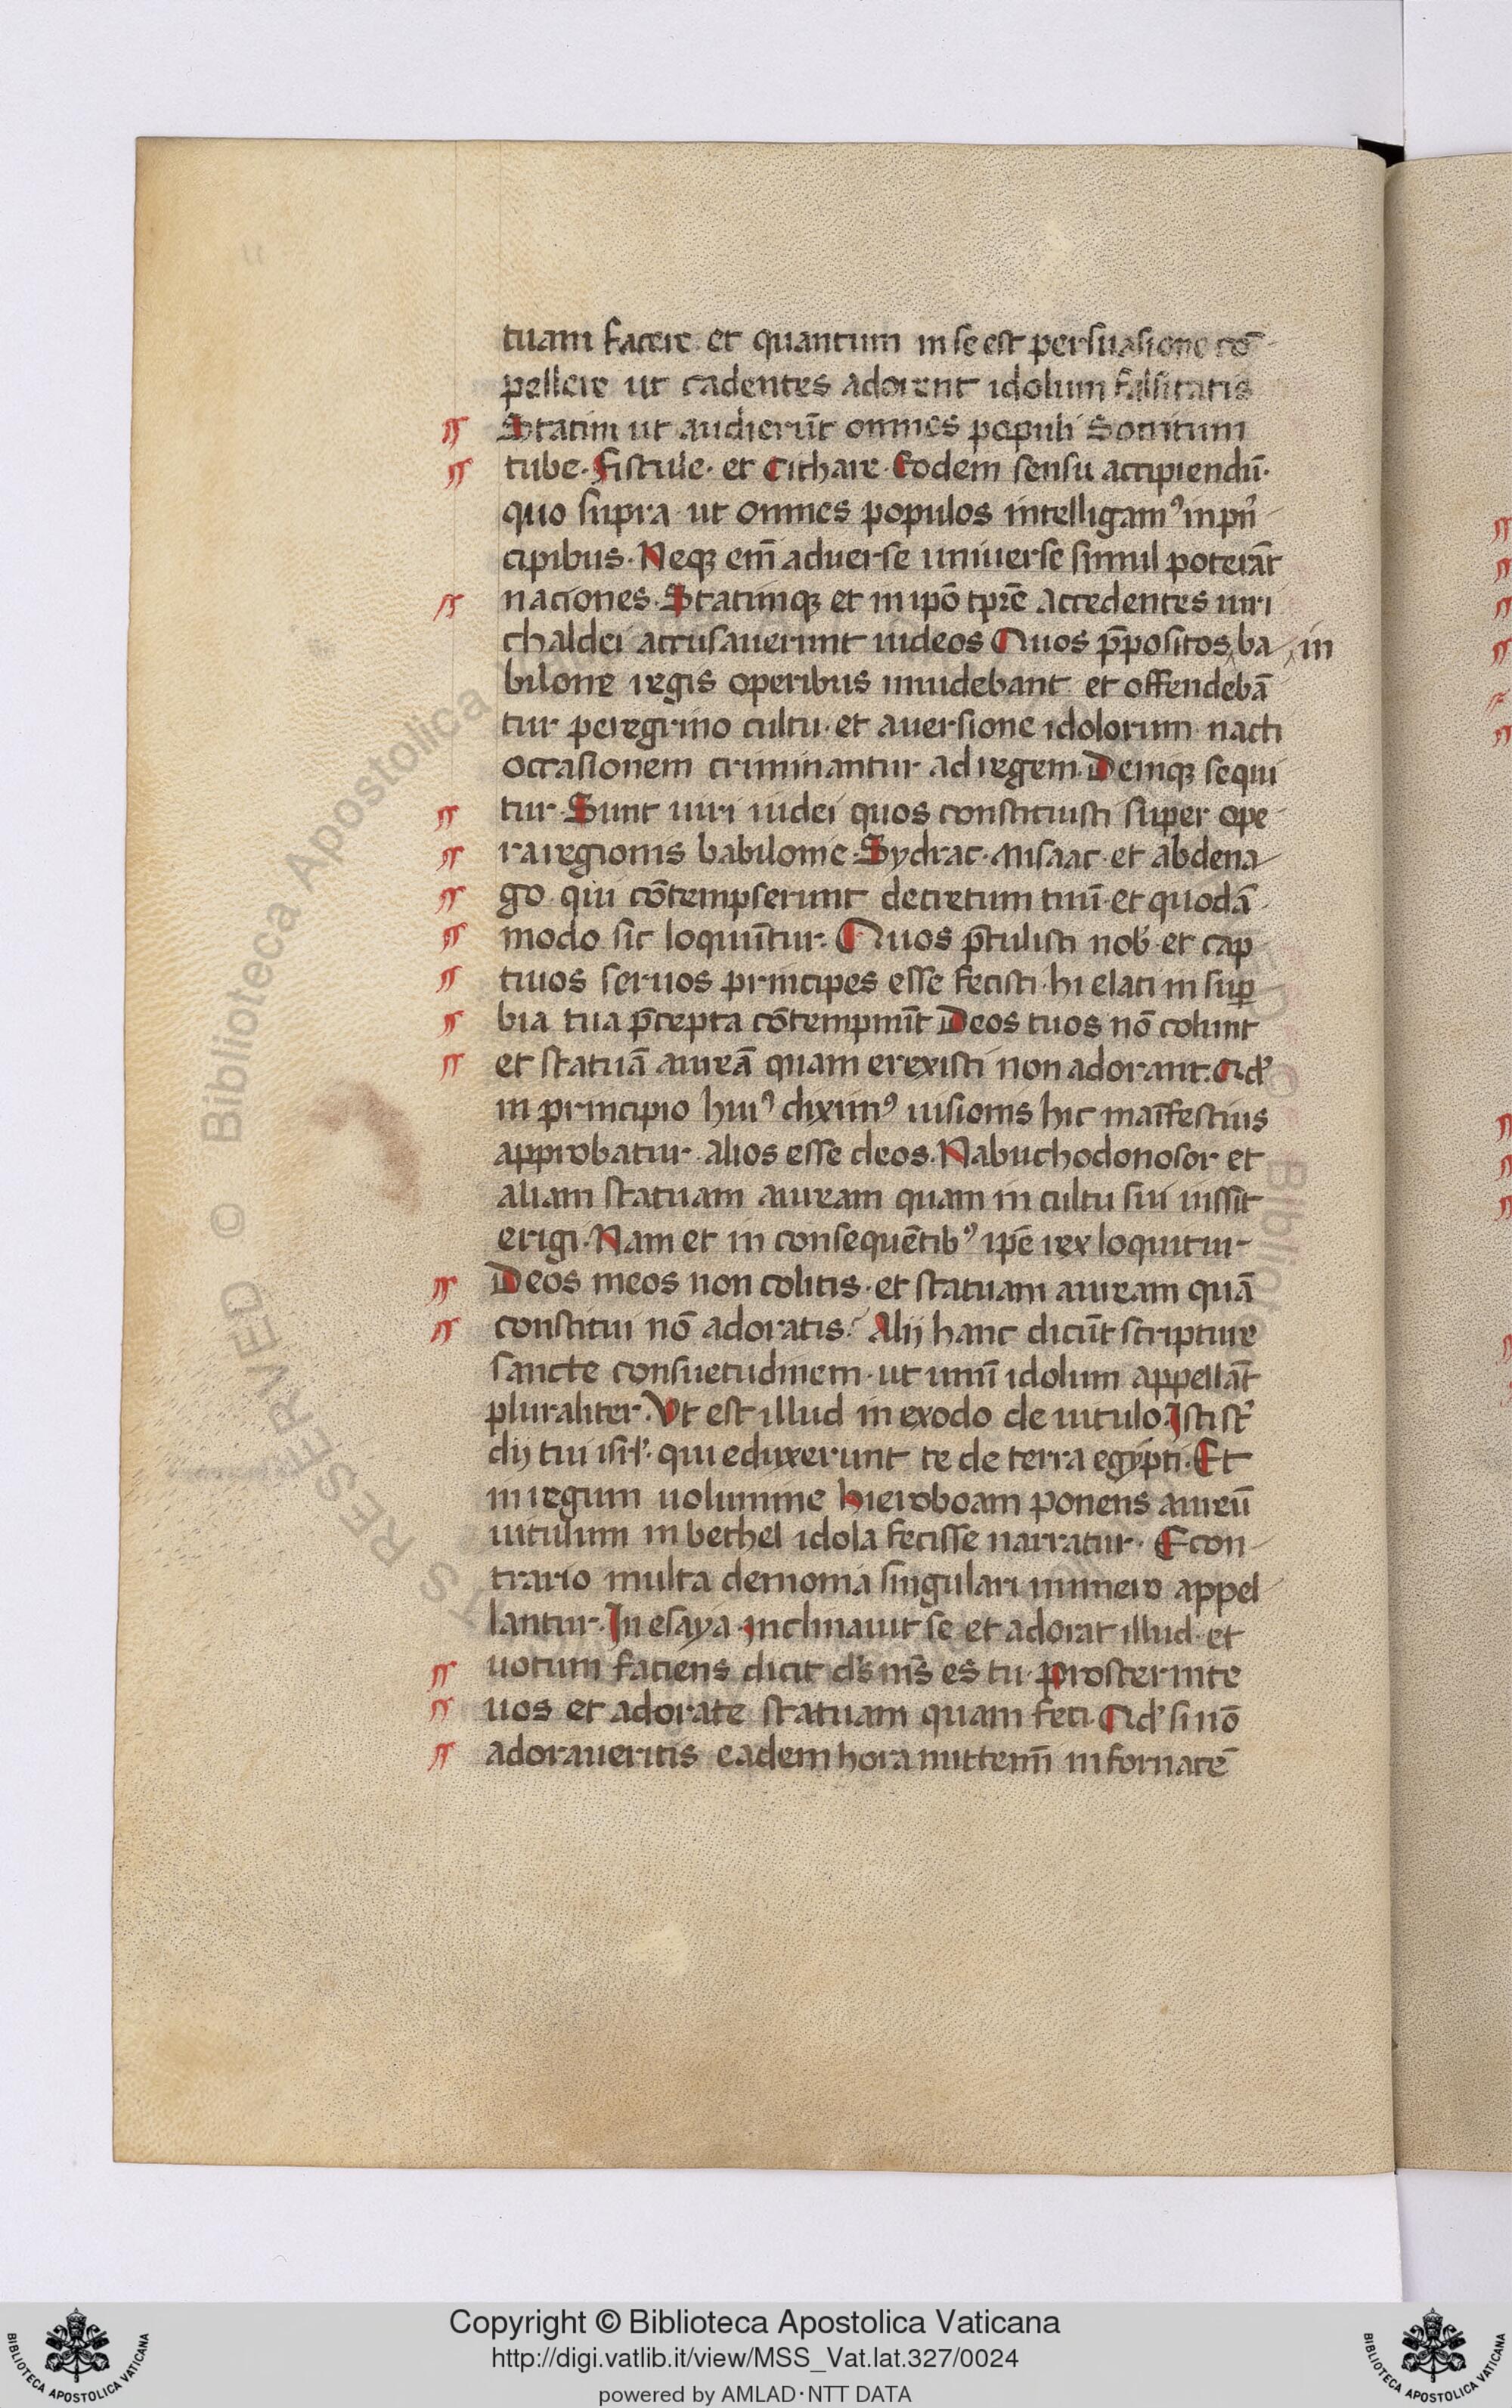 tuam facere et quantum in se est persuasione cō
pellere ut cadentes adorent idolum falsitatis
Statim ut audierūt omnes populi sonitum
tube· fistule· et cithare· Eodem sensu accipiendū·
quo supra ut omnes populos intelligamꝰ in pͥn
cipibus· Neqꝫ em̄ aduerse uniuerse simul poterāt
naciones· Statimqꝫ et in ip̄o tp̄re accedentes uiri
chaldei accusauerunt iudeos Quos p̄positos ba in
bilone regis operibus inuidebant et offendebā
tur peregrino cultu· et auersione idolorum nacti
occasionem criminantur ad regem· Deniqꝫ sequi
tur· Sunt uiri iudei quos constituisti super ope
ra regionis babilonie· Sydrac· misaac· et abdena
go qui cōtempserunt decretum tuū· et quodā
modo sic loquūtur· Quos p̄tulisti nob̄ et cap
tiuos seruos principes esse fecisti· hi elati in suꝑ
bia tua p̄cepta cōtempnūt Deos tuos nō colunt
et statuā aureā quam erexisti non adorant· Qđ
in principio huiꝰ diximꝰ uisionis hic manīfestius
approbatur· alios esse deos· Nabuchodonosor et
aliam statuam auream quam in cultu sui iussit
erigi· Nam et in consequētibꝰ ip̄e rex loquitur
Deos meos non colitis· et statuam auream quā
constitui nō adoratis· Alij hanc dicūt scripture
sancte consuetudinem· ut unū idolum appellāt
pluraliter· Vt est illud in exodo de uitulo· Isti st̄
dij tui isrl̄· qui eduxerunt te de terra egypti· Et
in regum uolumine hieroboam ponens aureū
uitulum in bethel idola fecisse narratur· Econ
trario multa demonia singulari numero appel
lantur· In esaya· inclinauit se et adorat illud· et
uotum faciens dicit ds̄ ms̄ es tu· Prosternite
uos et adorate statuam quam feci· Qđ si nō
adoraueritis eadem hora mittemī in fornacē
Copyright © Biblioteca Apostolica Vaticana
http://digi.vatlib.it/view/MSS_Vat.lat.327/0024
powered by AMLAD·NTT DATA